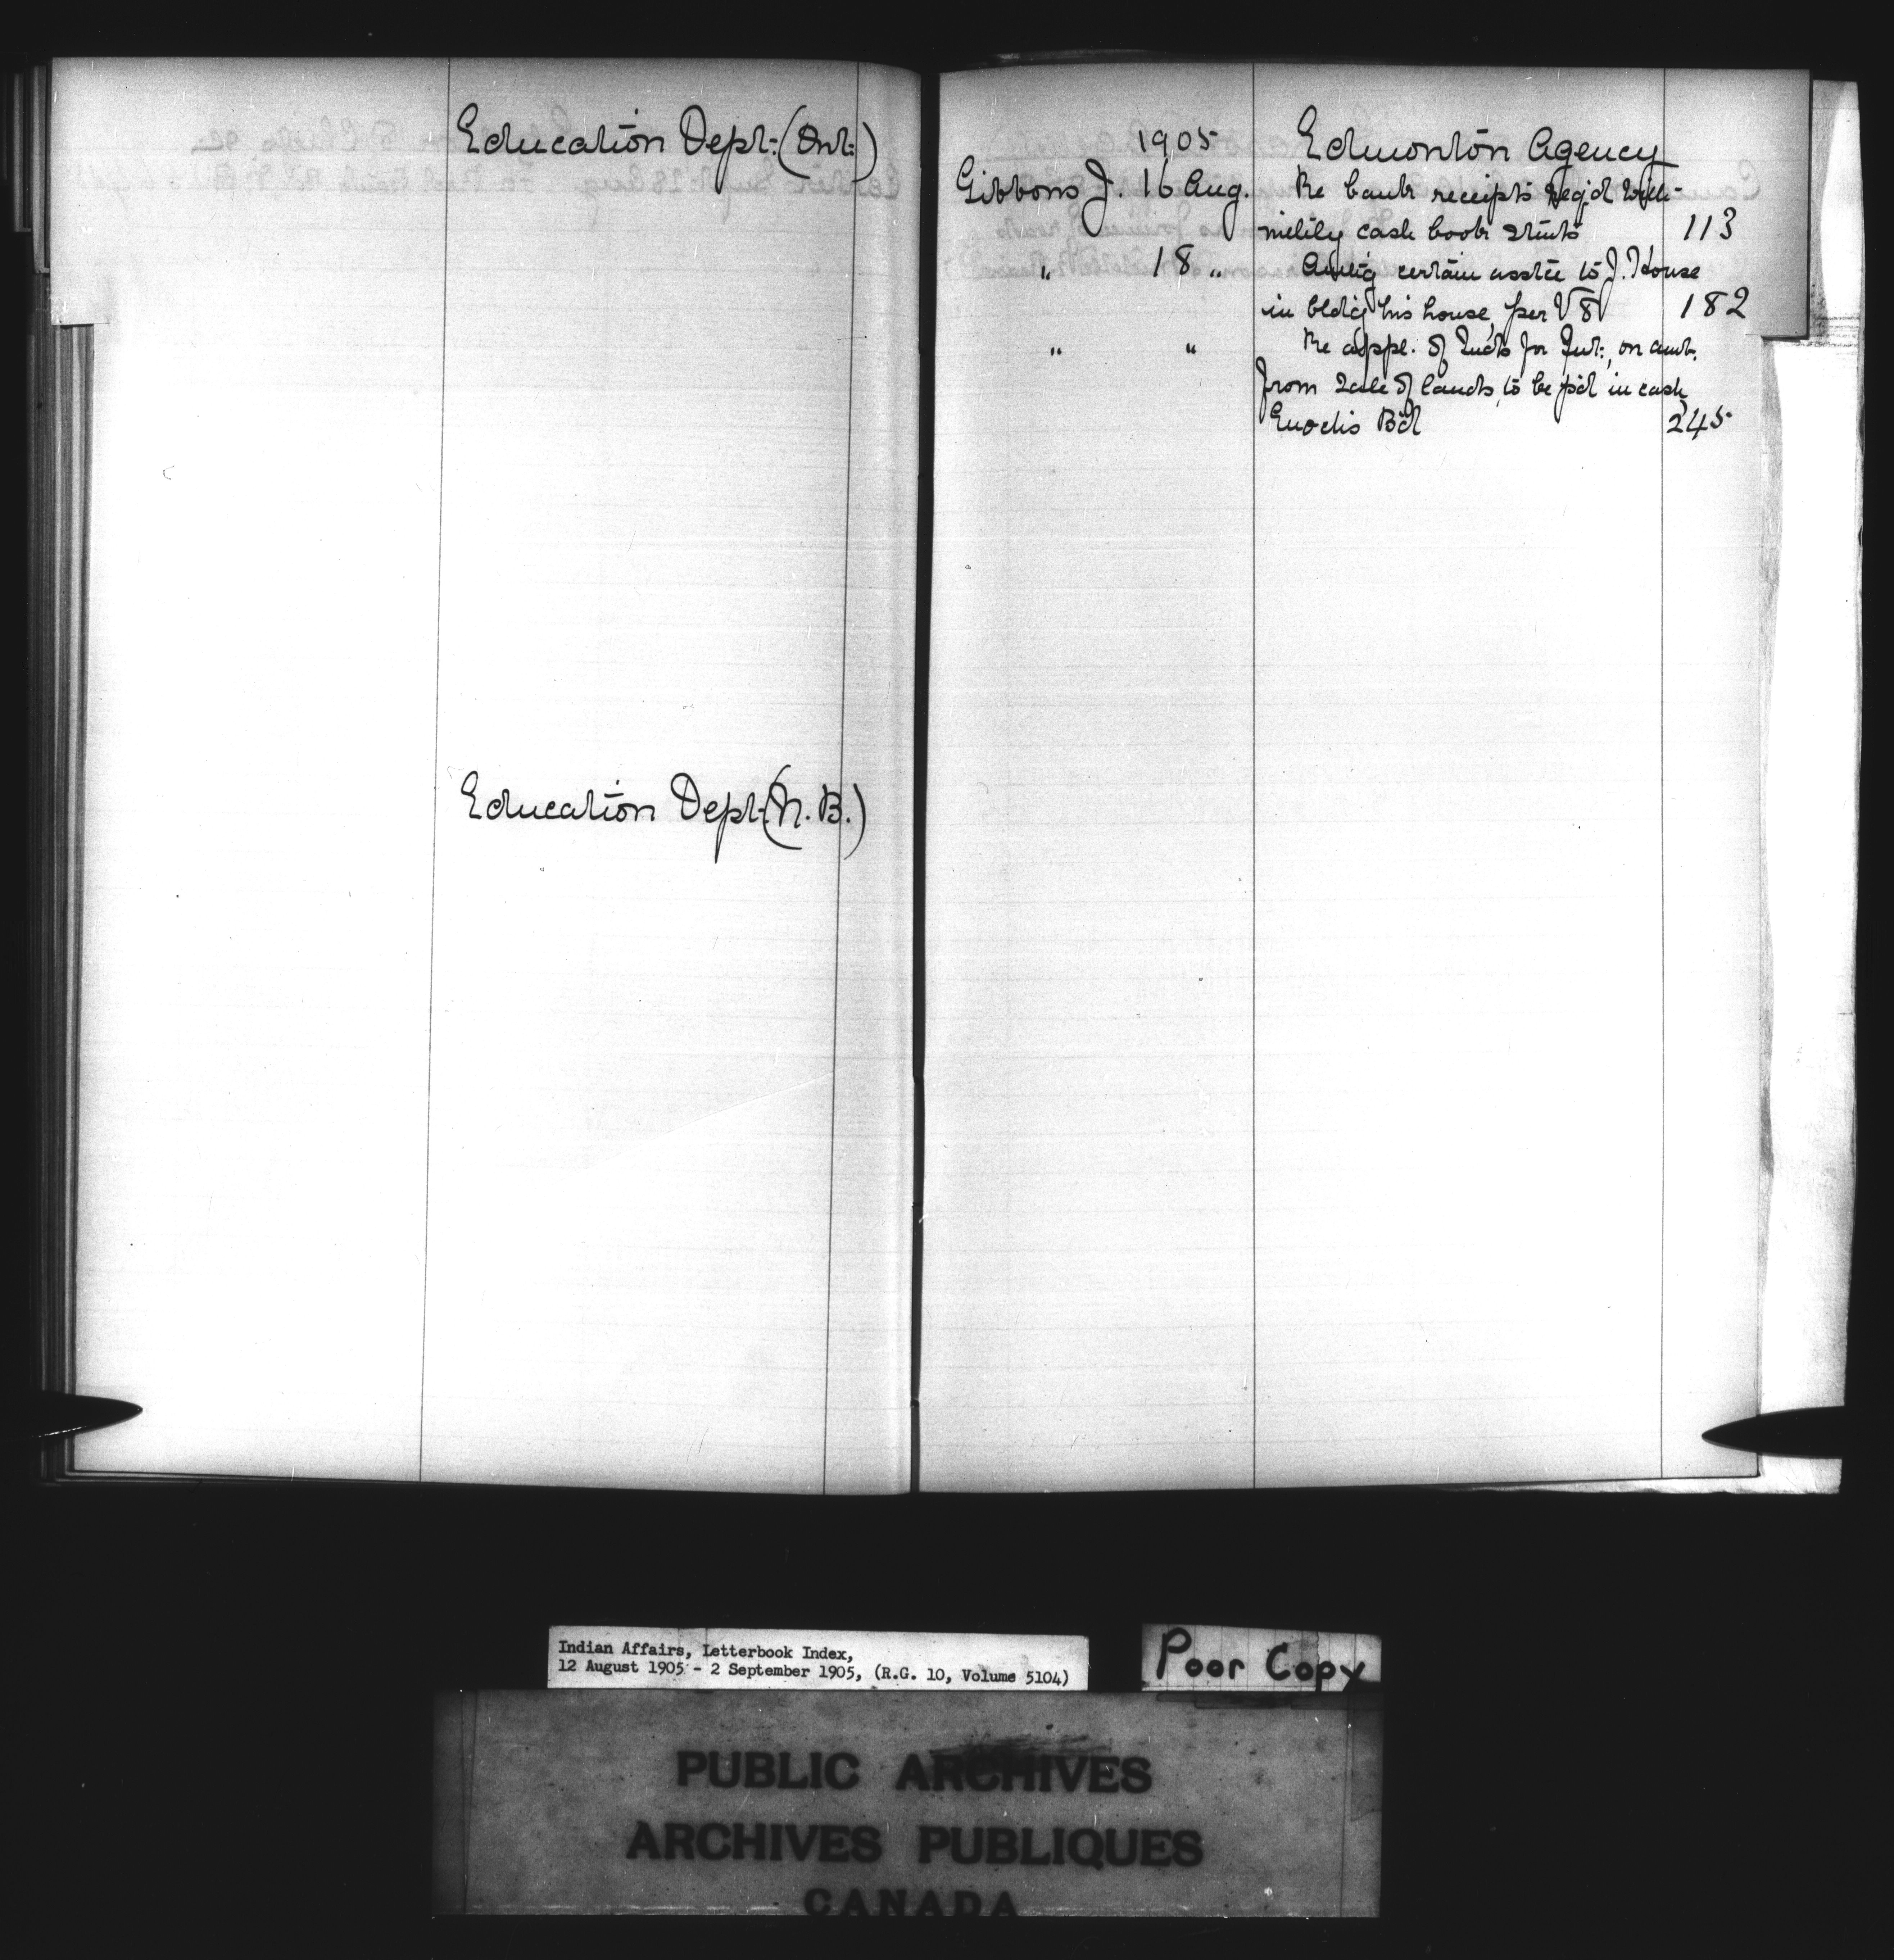 Education Dept: (Ont:)
Education Dept: (N. B.)
1905 Edmonton Agency
Gibbons J. 16 Aug. Re bank receipts req'd
cash book 113
" 18 " certain to J. House
in bldg his house, per V 8 182
" " Re appl. of Inds for Int:, on amt.
from Sale of lands, to be p'd in cash
Enochs Bd 245
Indian Affairs, Letterbook Index,
12 August 1905 - 2 September 1905, (R.G. 10, Volume 5104)
Poor Copy
PUBLIC ARCHIVES
ARCHIVES PUBLIQUES
CANADA